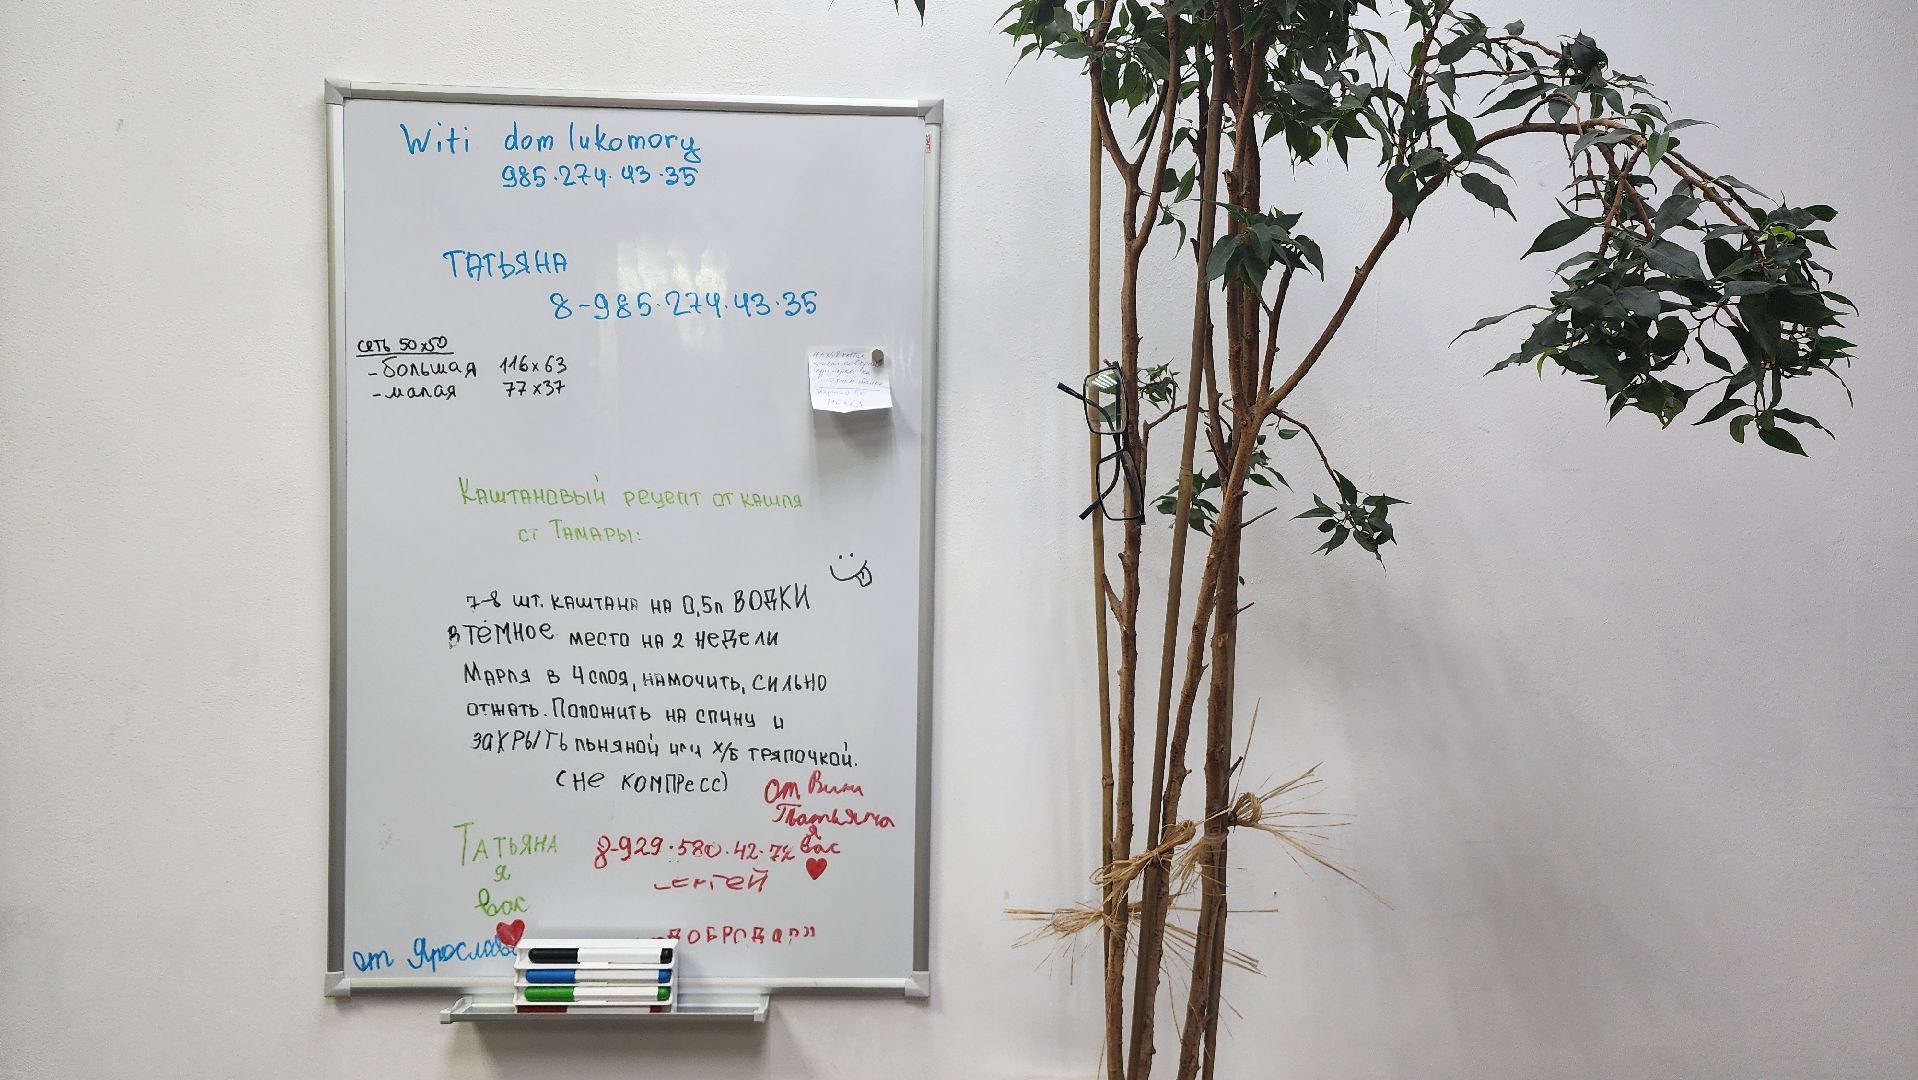 Witi dom lukomory
985.274.43.35
ТАТЬЯНА
8-985.274.43.35
сеть 50x50
-большая 116x63
-малая 77x37
116x63
Каштановый рецепт от кашля
от Тамары:
7-8 шт. каштана на 0,5л ВОДКИ
в тёмное место на 2 недели
Марля в 4 слоя, намочить, сильно
отжать. Положить на спину и
закрыть льняной или х/б тряпочкой.
(не компресс)
от Вики
Татьяна
я
вас
8-929.580.42.72
Сергей
"ДОБРОДАР"
Татьяна
я
вас
от Ярослава